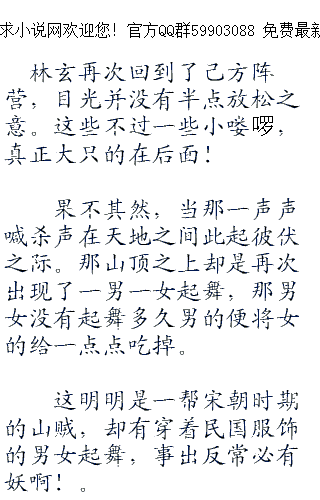 求小说网欢迎您！官方QQ群59903088 免费最新
林玄再次回到了己方阵
营，目光并没有半点放松之
意。这些不过一些小喽啰，
真正大只的在后面！
果不其然，当那一声声
喊杀声在天地之间此起彼伏
之际。那山顶之上却是再次
出现了一男一女起舞，那男
女没有起舞多久男的便将女
的给一点点吃掉。
这明明是一帮宋朝时期
的山贼，却有穿着民国服饰
的男女起舞，事出反常必有
妖啊！。